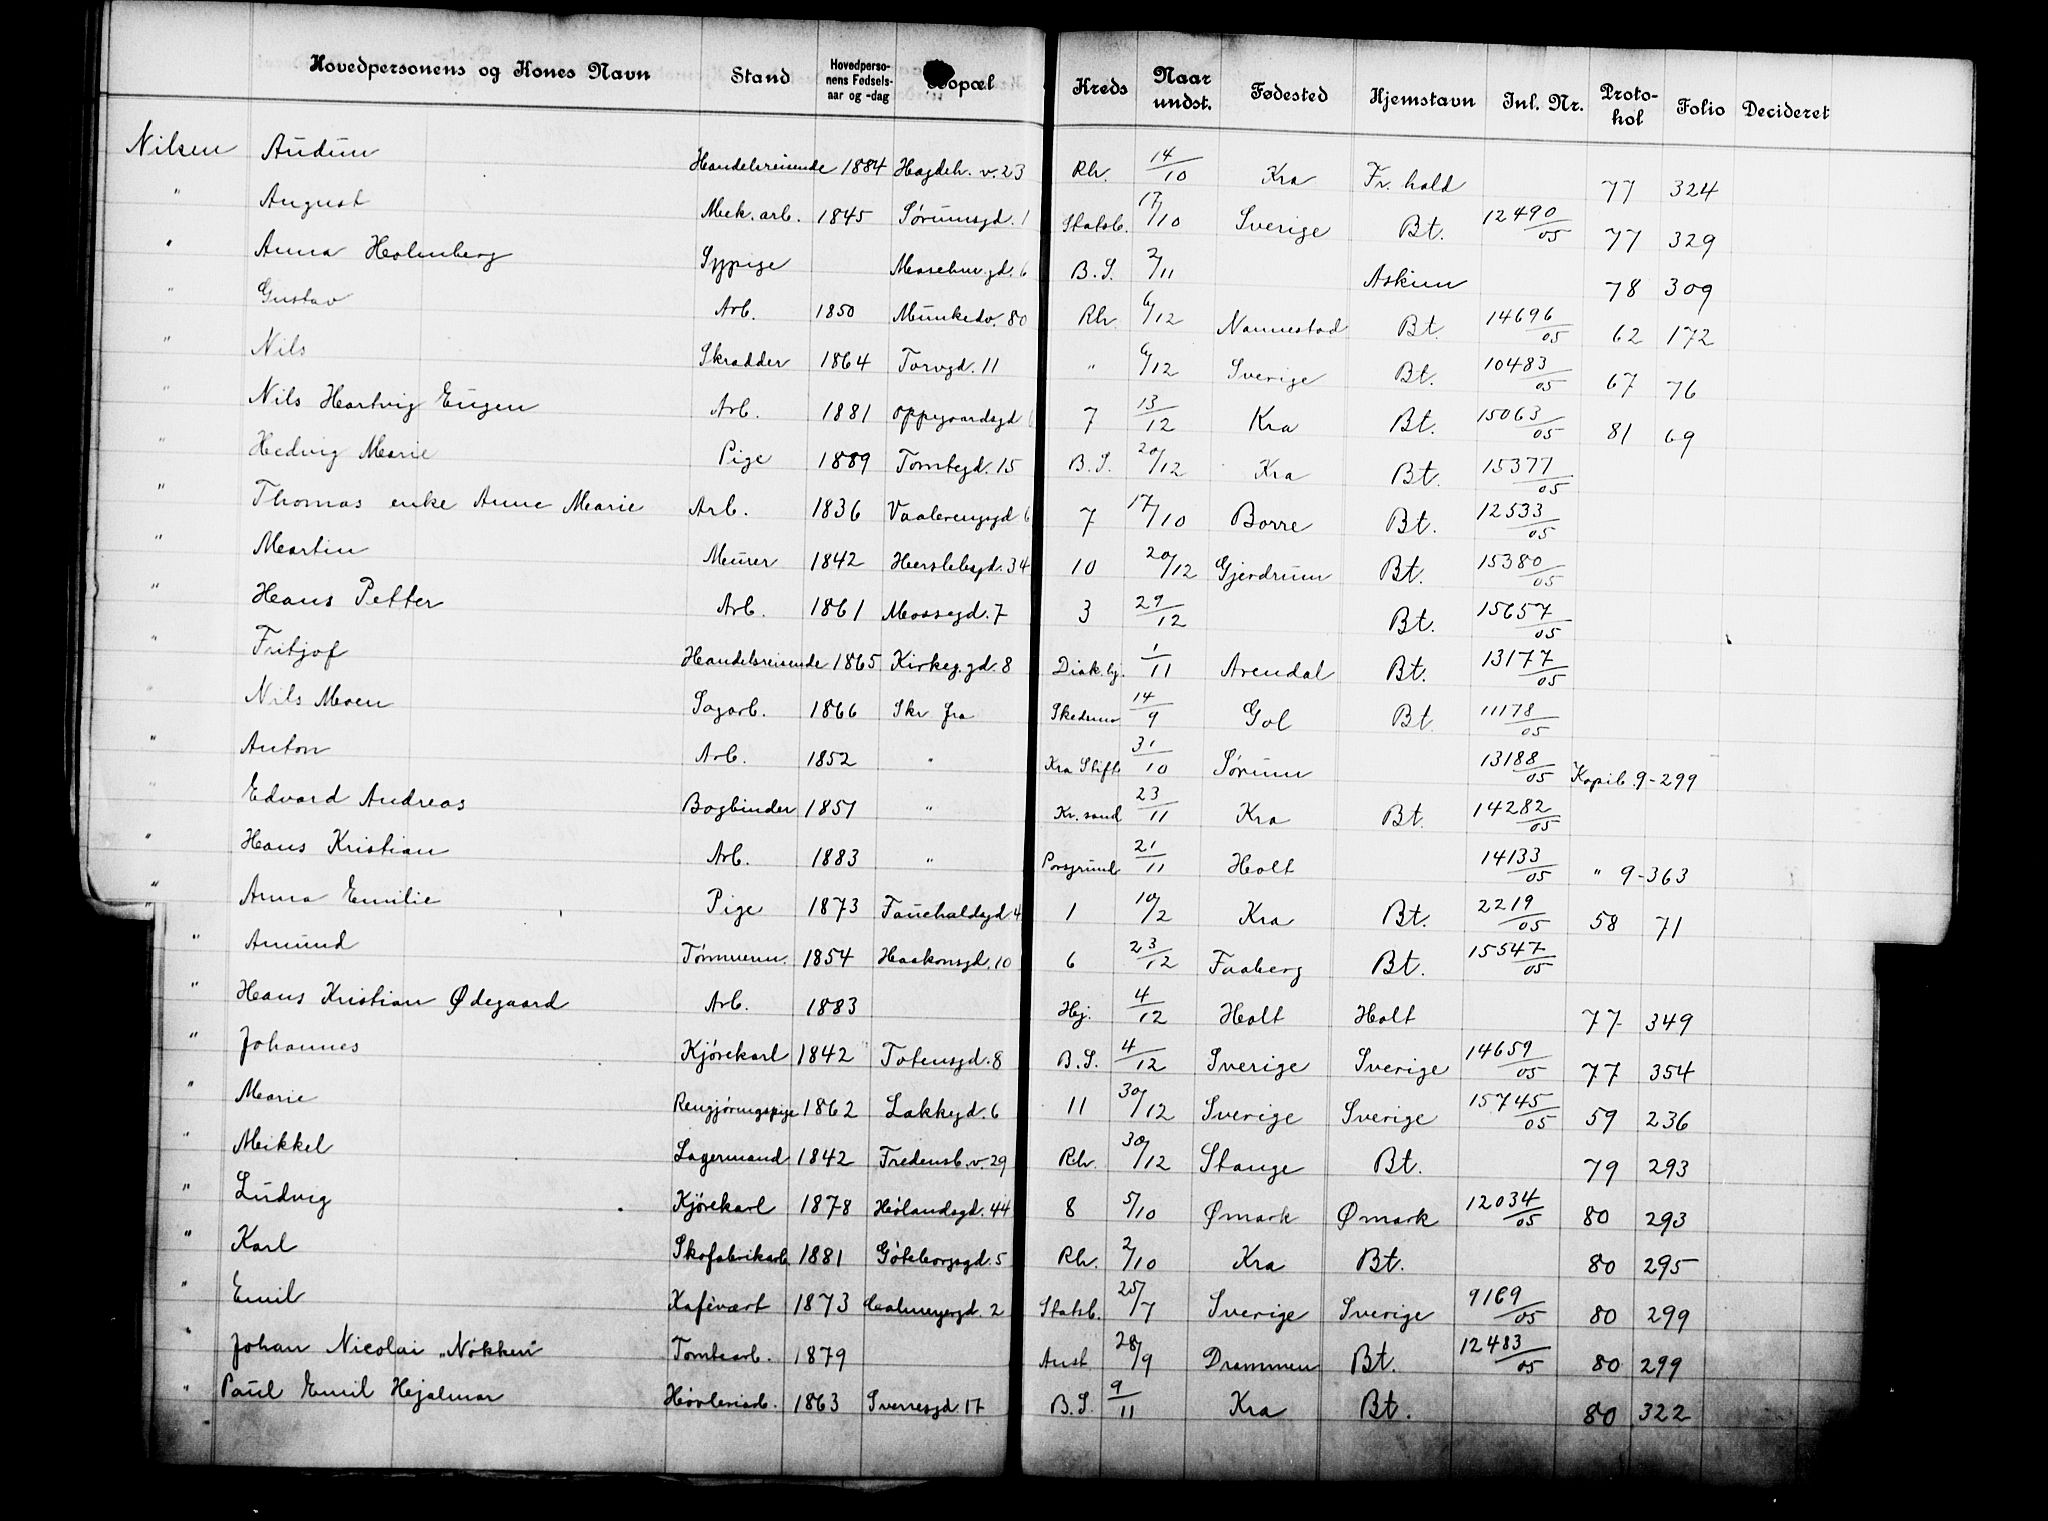 Hovedpersonens og Kones Navn Stand Hovedpersonens Fødselsaar og -dag Bopæl Kreds Naar undst. Fødested Hjemstavn Inl. Nr. Protokol Folio Decideret
Nilsen Audun Handelsreisende 1884 Hagdeh. v. 23 Rh. 14/10 Kra Fr. hald 77 324
" August Mek. arb. 1845 Sørumsgd. 1 Statsb. 17/10 Sverige Bt. 12490/05 77 329
" Anna Holmberg Sypige gd. 6 B.S. 2/11 Askim 78 309
" Gustav Arb. 1850 Munkedv. 80 Rh. 6/12 Nannestad Bt. 14696/05 62 172
" Nils Skrædder 1864 Torvgd. 11 " 6/12 Sverige Bt. 10483/05 67 76
" Nils Hartvig Eugen Arb. 1881 Oppegaardsgd 7 13/12 Kra Bt. 15063/05 81 69
" Hedvig Marie Pige 1889 Tomtegd. 15 B.S. 20/12 Kra Bt. 15377/05
" Thomas enke Anne Marie Arb. 1836 Vaalerengsgd 6 7 17/10 Borre Bt. 12533/05
" Martin Murer 1842 Herslebsgd. 34 10 20/12 Gjerdrum Bt. 15380/05
" Hans Petter Arb. 1861 Mossegd. 7 3 29/12 Bt. 15657/05
" Fritjof Handelsreisende 1865 Kirkeg. gd. 8 Diak. hj. 1/11 Arendal Bt. 13177/05
" Nils Moen Sagarb. 1866 Skr fra Skedsmo 14/9 Gol Bt. 11178/05
" Anton Arb. 1852 " Kra Stift 31/10 Sørum 13188/05 Kopib. 9-299
" Edvard Andreas Bogbinder 1851 " Kr. sand 23/11 Kra Bt. 14282/05
" Hans Kristian Arb. 1883 " Porsgrund 21/11 Holt 14133/05 " 9-363
" Anna Emilie Pige 1873 Fauchaldsgd. 4 1 10/2 Kra Bt. 2219/05 58 71
" Amund Tømmerm. 1854 Haakonsgd. 10 6 23/12 Faaberg Bt. 15547/05
" Hans Kristian Ødegaard Arb. 1883 Hej. 4/12 Holt Holt 77 349
" Johannes Kjørekarl 1842 Totensgd. 8 B.S. 4/12 Sverige Sverige 14659/05 77 354
" Marie Rengjøringspige 1862 Lakkegd. 6 11 30/12 Sverige Sverige 15745/05 59 236
" Mikkel Lagermand 1842 Fredensb. v. 29 Rh. 30/12 Stange Bt. 79 293
" Ludvig Kjørekarl 1878 Hølandsgd. 44 8 5/10 Ømark Ømark 12034/05 80 293
" Karl Skofabrikarb. 1881 Gøteborgsgd. 5 Rh. 2/10 Kra Bt. 80 295
" Emil Kafévært 1873 Calmeyersgd. 2 Statsb. 25/7 Sverige Sverige 9169/05 80 299
" Johan Nicolai „Nøkken" Tomtearb. 1879 Anst 28/9 Drammen Bt. 12483/05 80 299
" Paul Emil Hjalmar Høvleriarb. 1863 Sverresgd 17 B.S. 9/11 Kra Bt. 80 322